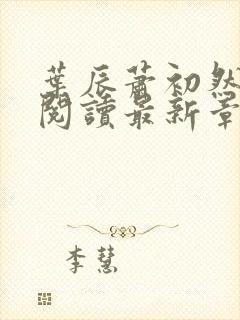 葉辰蕭初然
閱讀最新章
李慧